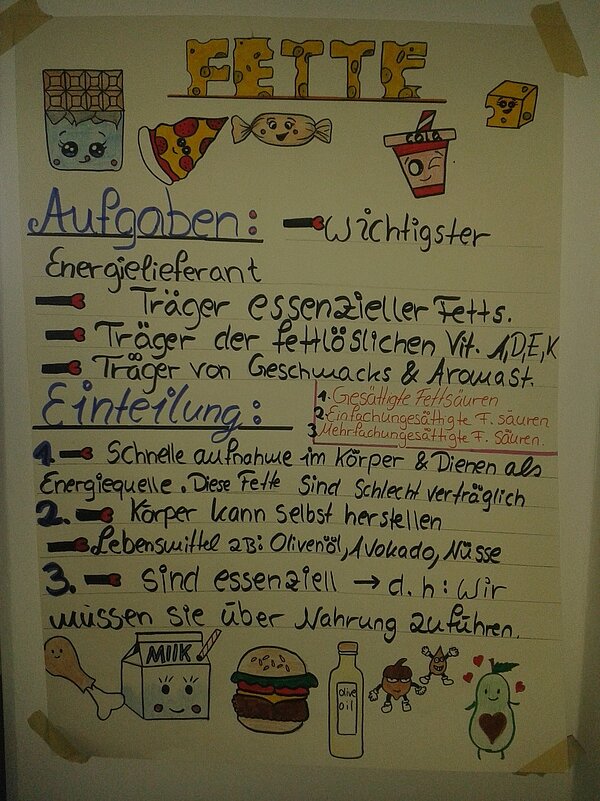 FETTE
cola
Aufgaben: wichtigster
Energielieferant
Träger essenzieller Fetts.
Träger der fettlöslichen Vit. A,D,E,K
Träger von Geschmacks & Aromast.
Einteilung:
1. Gesättigte Fettsäuren
2. Einfachungesättigte F. säuren
3. Mehrfachungesättigte F. Säuren.
1. Schnelle aufnahme im Körper & Dienen als
Energiequelle. Diese Fette sind schlecht verträglich
2. Körper kann selbst herstellen
Lebensmittel zB: Olivenöl, Avokado, Nüsse
3. sind essenziell → d.h: wir
müssen sie über Nahrung zuführen.
MIlK
olive
oil